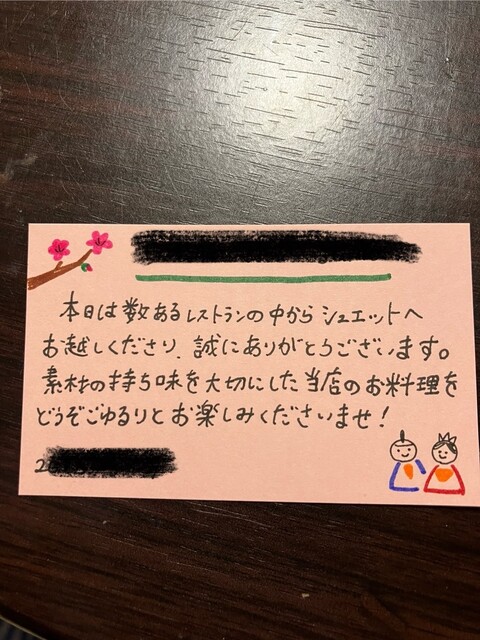 本日は数あるレストランの中からシュエットへ
お越しくださり、誠にありがとうございます。
素材の持ち味を大切にした当店のお料理を
どうぞごゆるりとお楽しみくださいませ!
2